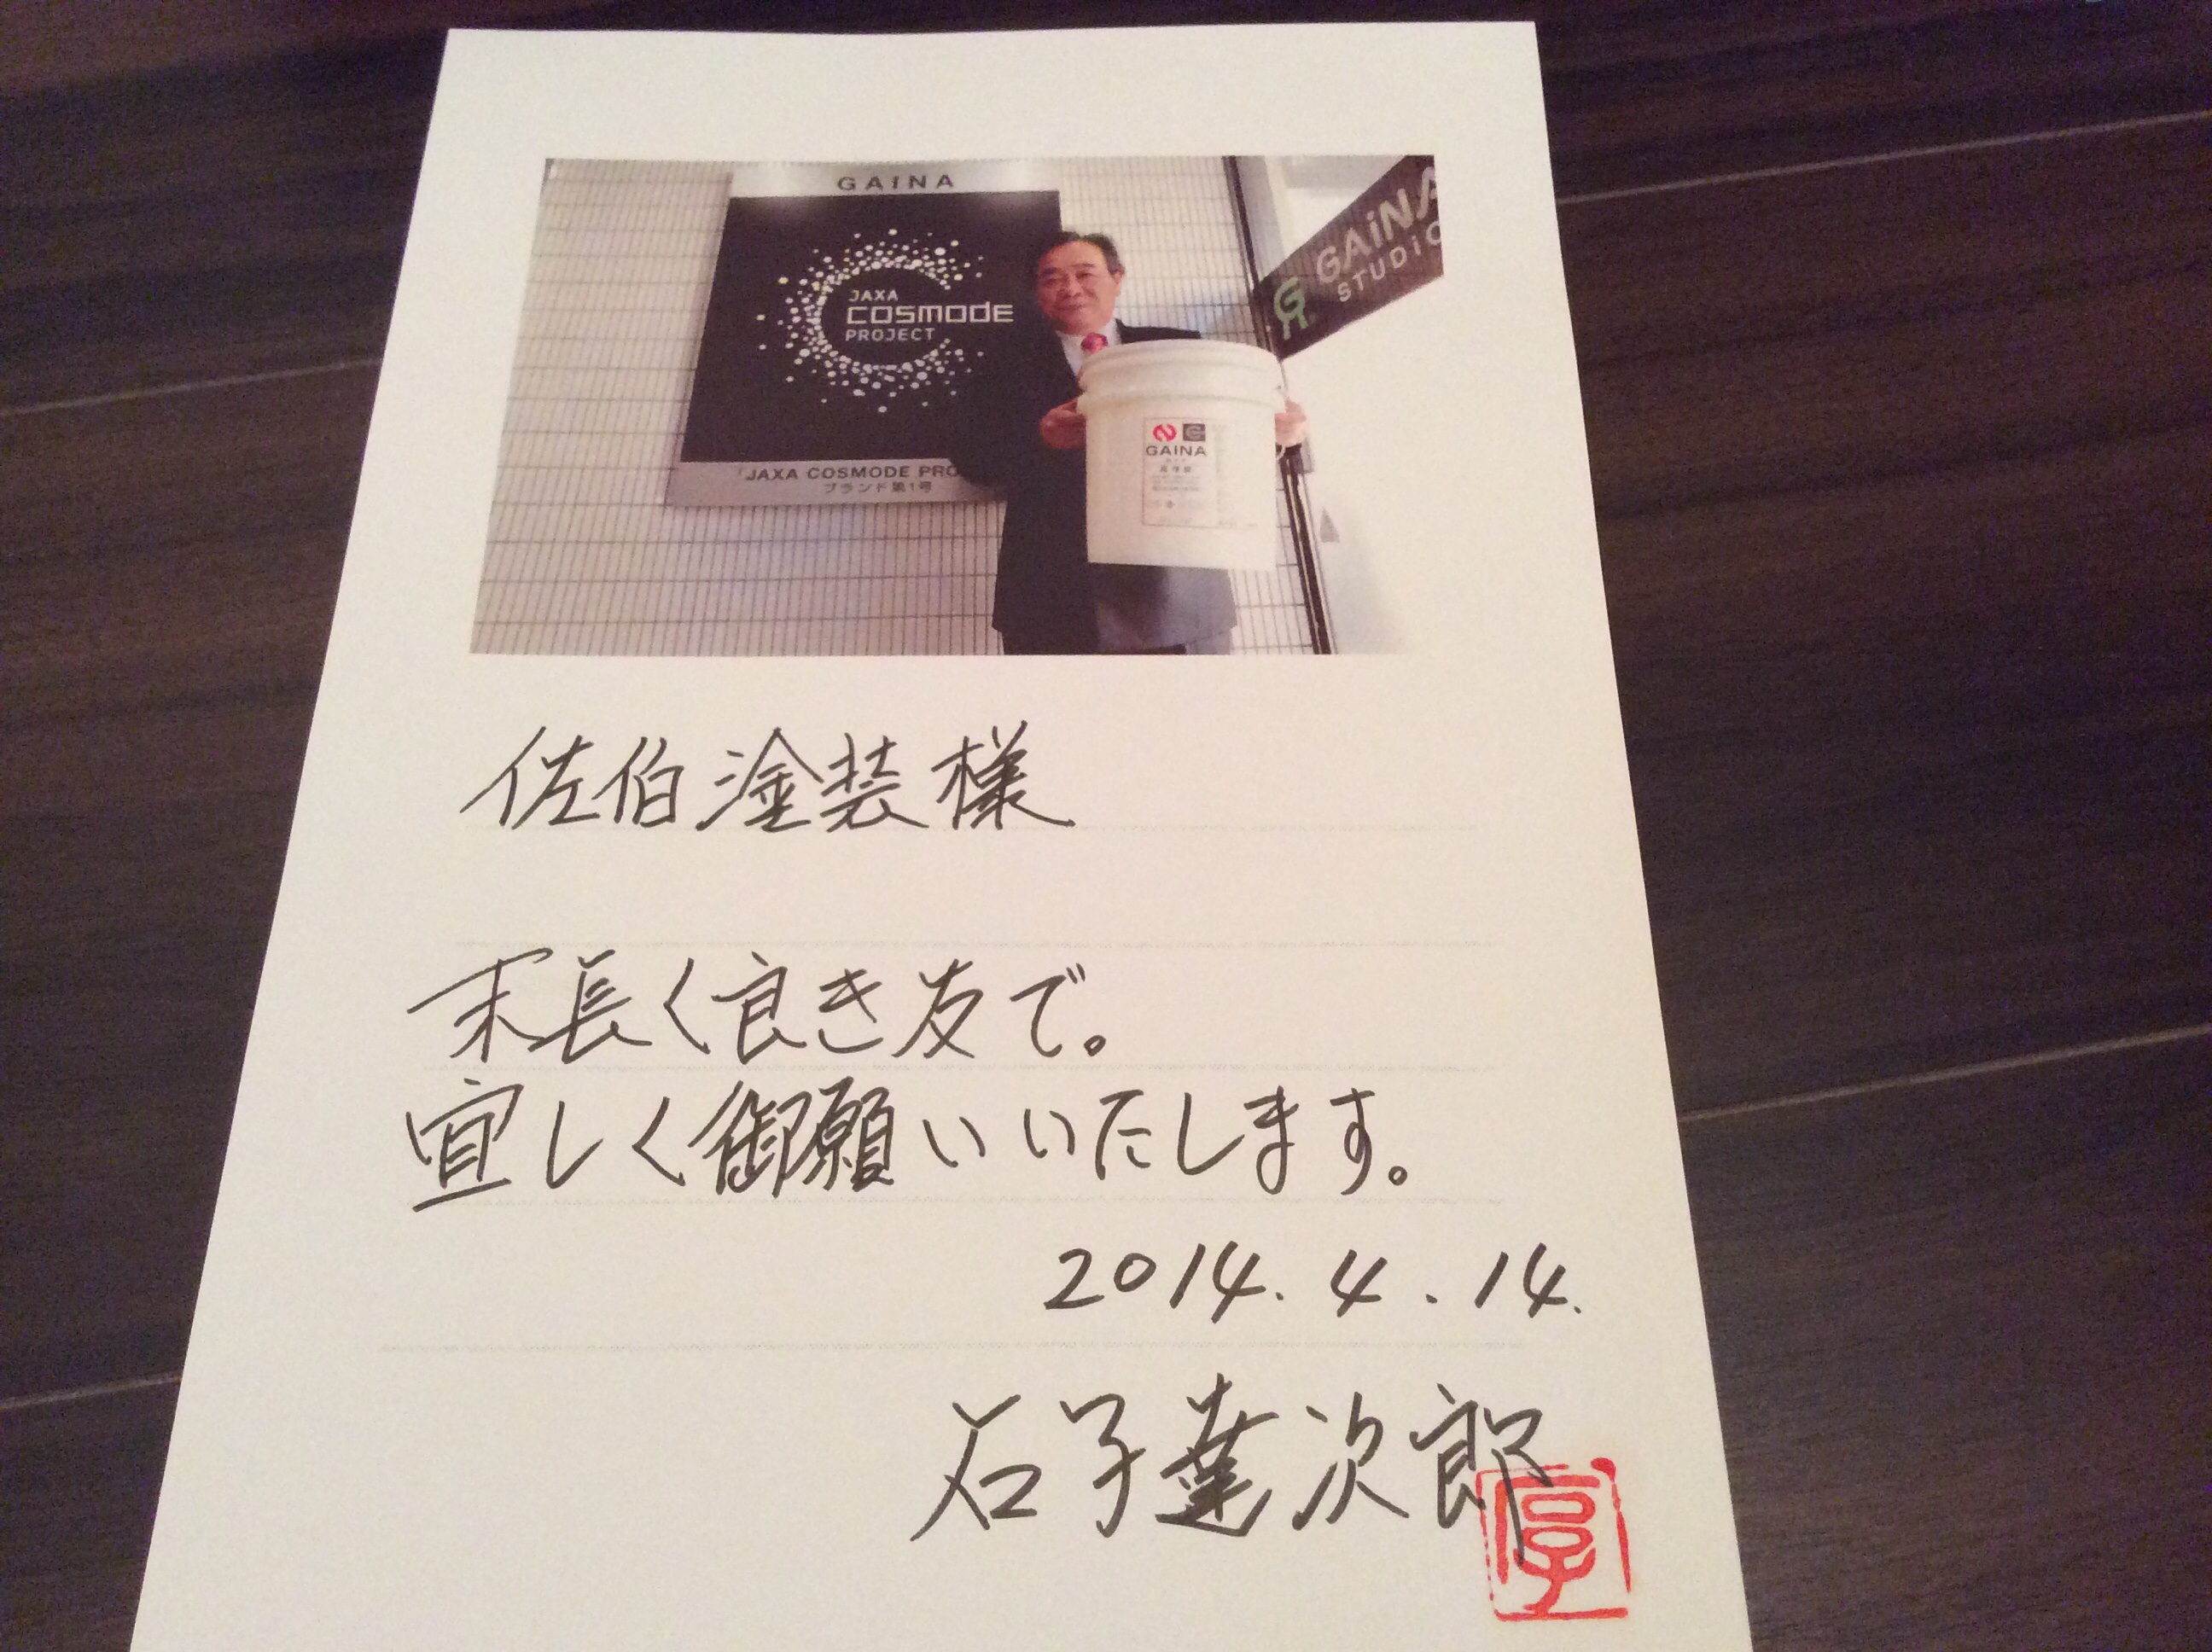 GAINA
JAXA
COSMODE
PROJECT
「JAXA COSMODE PRO
ブランド第1号
GAiNA
STUDiO
GAINA
佐伯塗装様
末長く良き友で。
宜しく御願いいたします。
2014.4.14.
石子達次郎